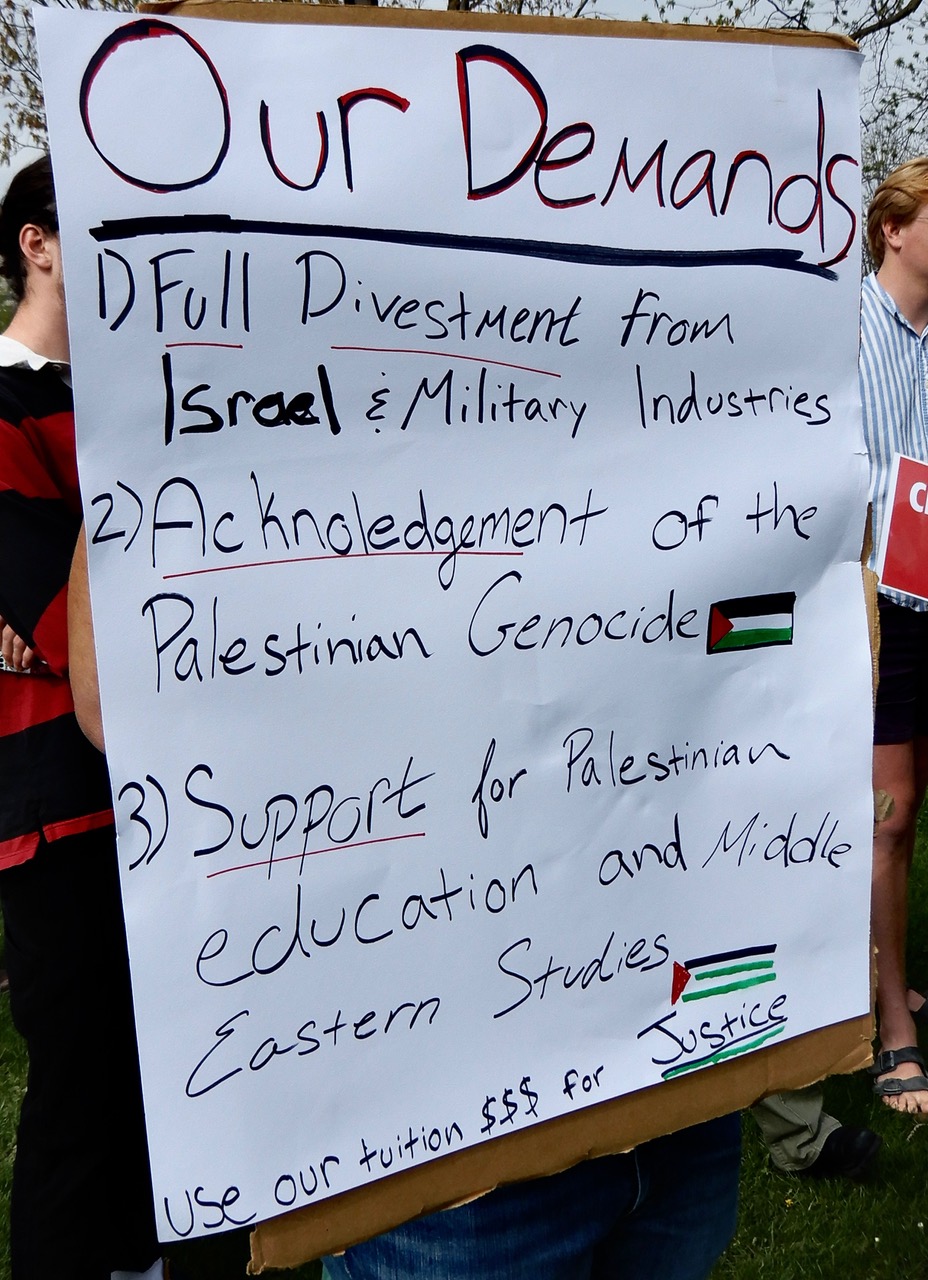 Our Demands
1) Full Divestment from
Israel & Military Industries
2) Acknoledgement of the
Palestinian Genocide
3) Support for Palestinian
education and Middle
Eastern Studies
Use our tuition $$$ for Justice